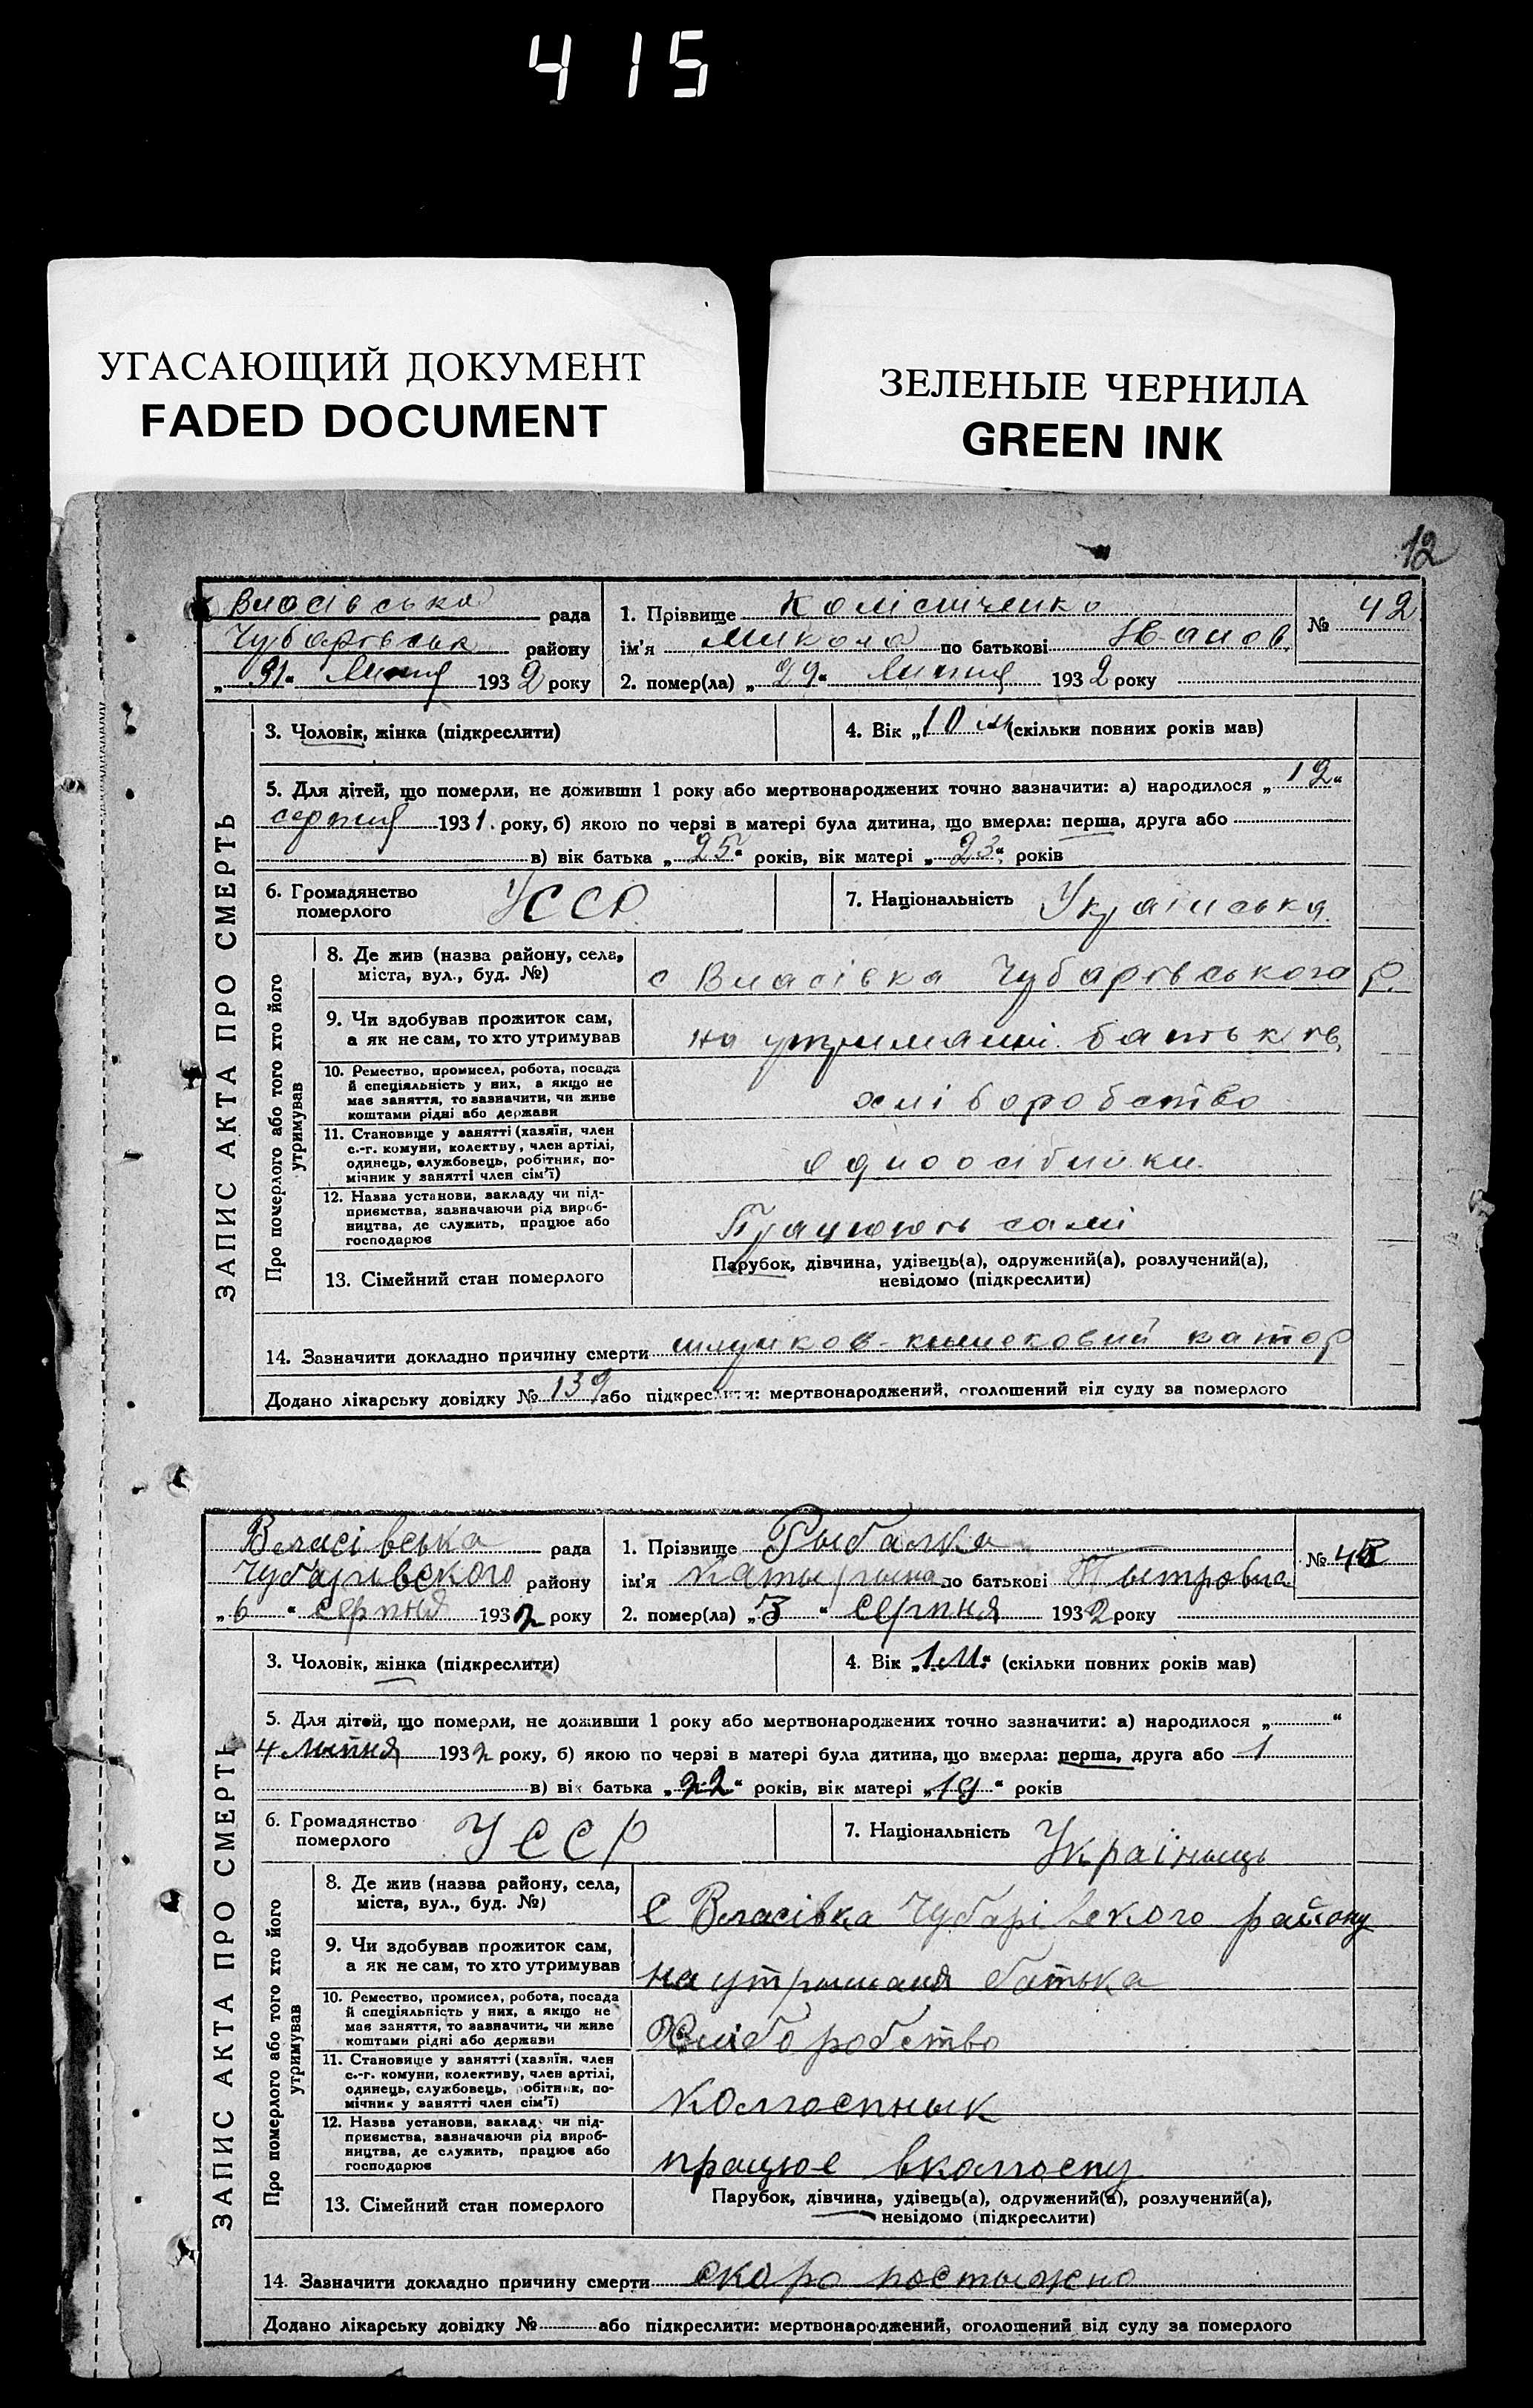 415
УГАСАЮЩИЙ ДОКУМЕНТ
FADED DOCUMENT
ЗЕЛЕНЫЕ ЧЕРНИЛА
GREEN INK
12
ЗАПИС АКТА ПРО СМЕРТЬ
Власівська рада
Чубарівськ району
„31“ Липня 1932 року
1. Прізвище Колісніченко
ім'я Микола по батькові Іванов.
№ 42
2. помер(ла) „29“ Липня 1932 року
3. Чоловік, жінка (підкреслити)
4. Вік „10 м (скільки повних років мав)
5. Для дітей, що померли, не доживши 1 року або мертвонароджених точно зазначити: а) народилося „12“
серпня 1931. року, б) якою по черзі в матері була дитина, що вмерла: перша, друга або
в) вік батька „25“ років, вік матері „23“ років
6. Громадянство померлого УССР
7. Національність Українська
Про померлого або того хто його утримував
8. Де жив (назва району, села, міста, вул., буд. №) с Власівка Чубарівського р.
9. Чи здобував прожиток сам, а як не сам, то хто утримував на утриманні батьків,
10. Ремество, промисел, робота, посада й спеціяльність у них, а якщо не має заняття, то зазначити, чи живе коштами рідні або держави хліборобство
11. Становище у занятті (хазяїн, член с.-г. комуни, колектву, член артілі, одинець, службовець, робітник, помічник у занятті член сім'ї) одноосібники
12. Назва установи, закладу чи підприємства, зазначаючи рід виробництва, де служить, працює або господарює Працюють самі
13. Сімейний стан померлого Парубок, дівчина, удівець(а), одружений(а), розлучений(а), невідомо (підкреслити)
14. Зазначити докладно причину смерти шлунков-кишековий катор
Додано лікарську довідку № 139 або підкреслити: мертвонароджений, оголошений від суду за померлого
ЗАПИС АКТА ПРО СМЕРТЬ
Власівська рада
Чубарівского району
„6“ серпня 1932 року
1. Прізвище Рыбалка
ім'я Катырына по батькові Пытровна
№
2. помер(ла) „3“ серпня 1932 року
3. Чоловік, жінка (підкреслити)
4. Вік „1.м.“ (скільки повних років мав)
5. Для дітей, що померли, не доживши 1 року або мертвонароджених точно зазначити: а) народилося „ “
4 лыпня 1932 року, б) якою по черзі в матері була дитина, що вмерла: перша, друга або 1
в) вік батька „22“ років, вік матері „19“ років
6. Громадянство померлого УССР
7. Національність Україныць
Про померлого або того хто його утримував
8. Де жив (назва району, села, міста, вул., буд. №) С Власівка Чубарівского району
9. Чи здобував прожиток сам, а як не сам, то хто утримував на утрыманя батька
10. Ремество, промисел, робота, посада й спеціяльність у них, а якщо не має заняття, то зазначити, чи живе коштами рідні або держави Хліборобство
11. Становище у занятті (хазяїн, член с.-г. комуни, колективу, член артілі, одинець, службовець, робітник, помічник у занятті член сім'ї) колгоспнык
12. Назва установи, закладу чи підприємства, зазначаючи рід виробництва, де служить, працює або господарює працює вколгоспу
13. Сімейний стан померлого Парубок, дівчина, удівець(а), одружений(а), розлучений(а), невідомо (підкреслити)
14. Зазначити докладно причину смерти скоро постыжно
Додано лікарську довідку № або підкреслити: мертвонароджений, оголошений від суду за померлого